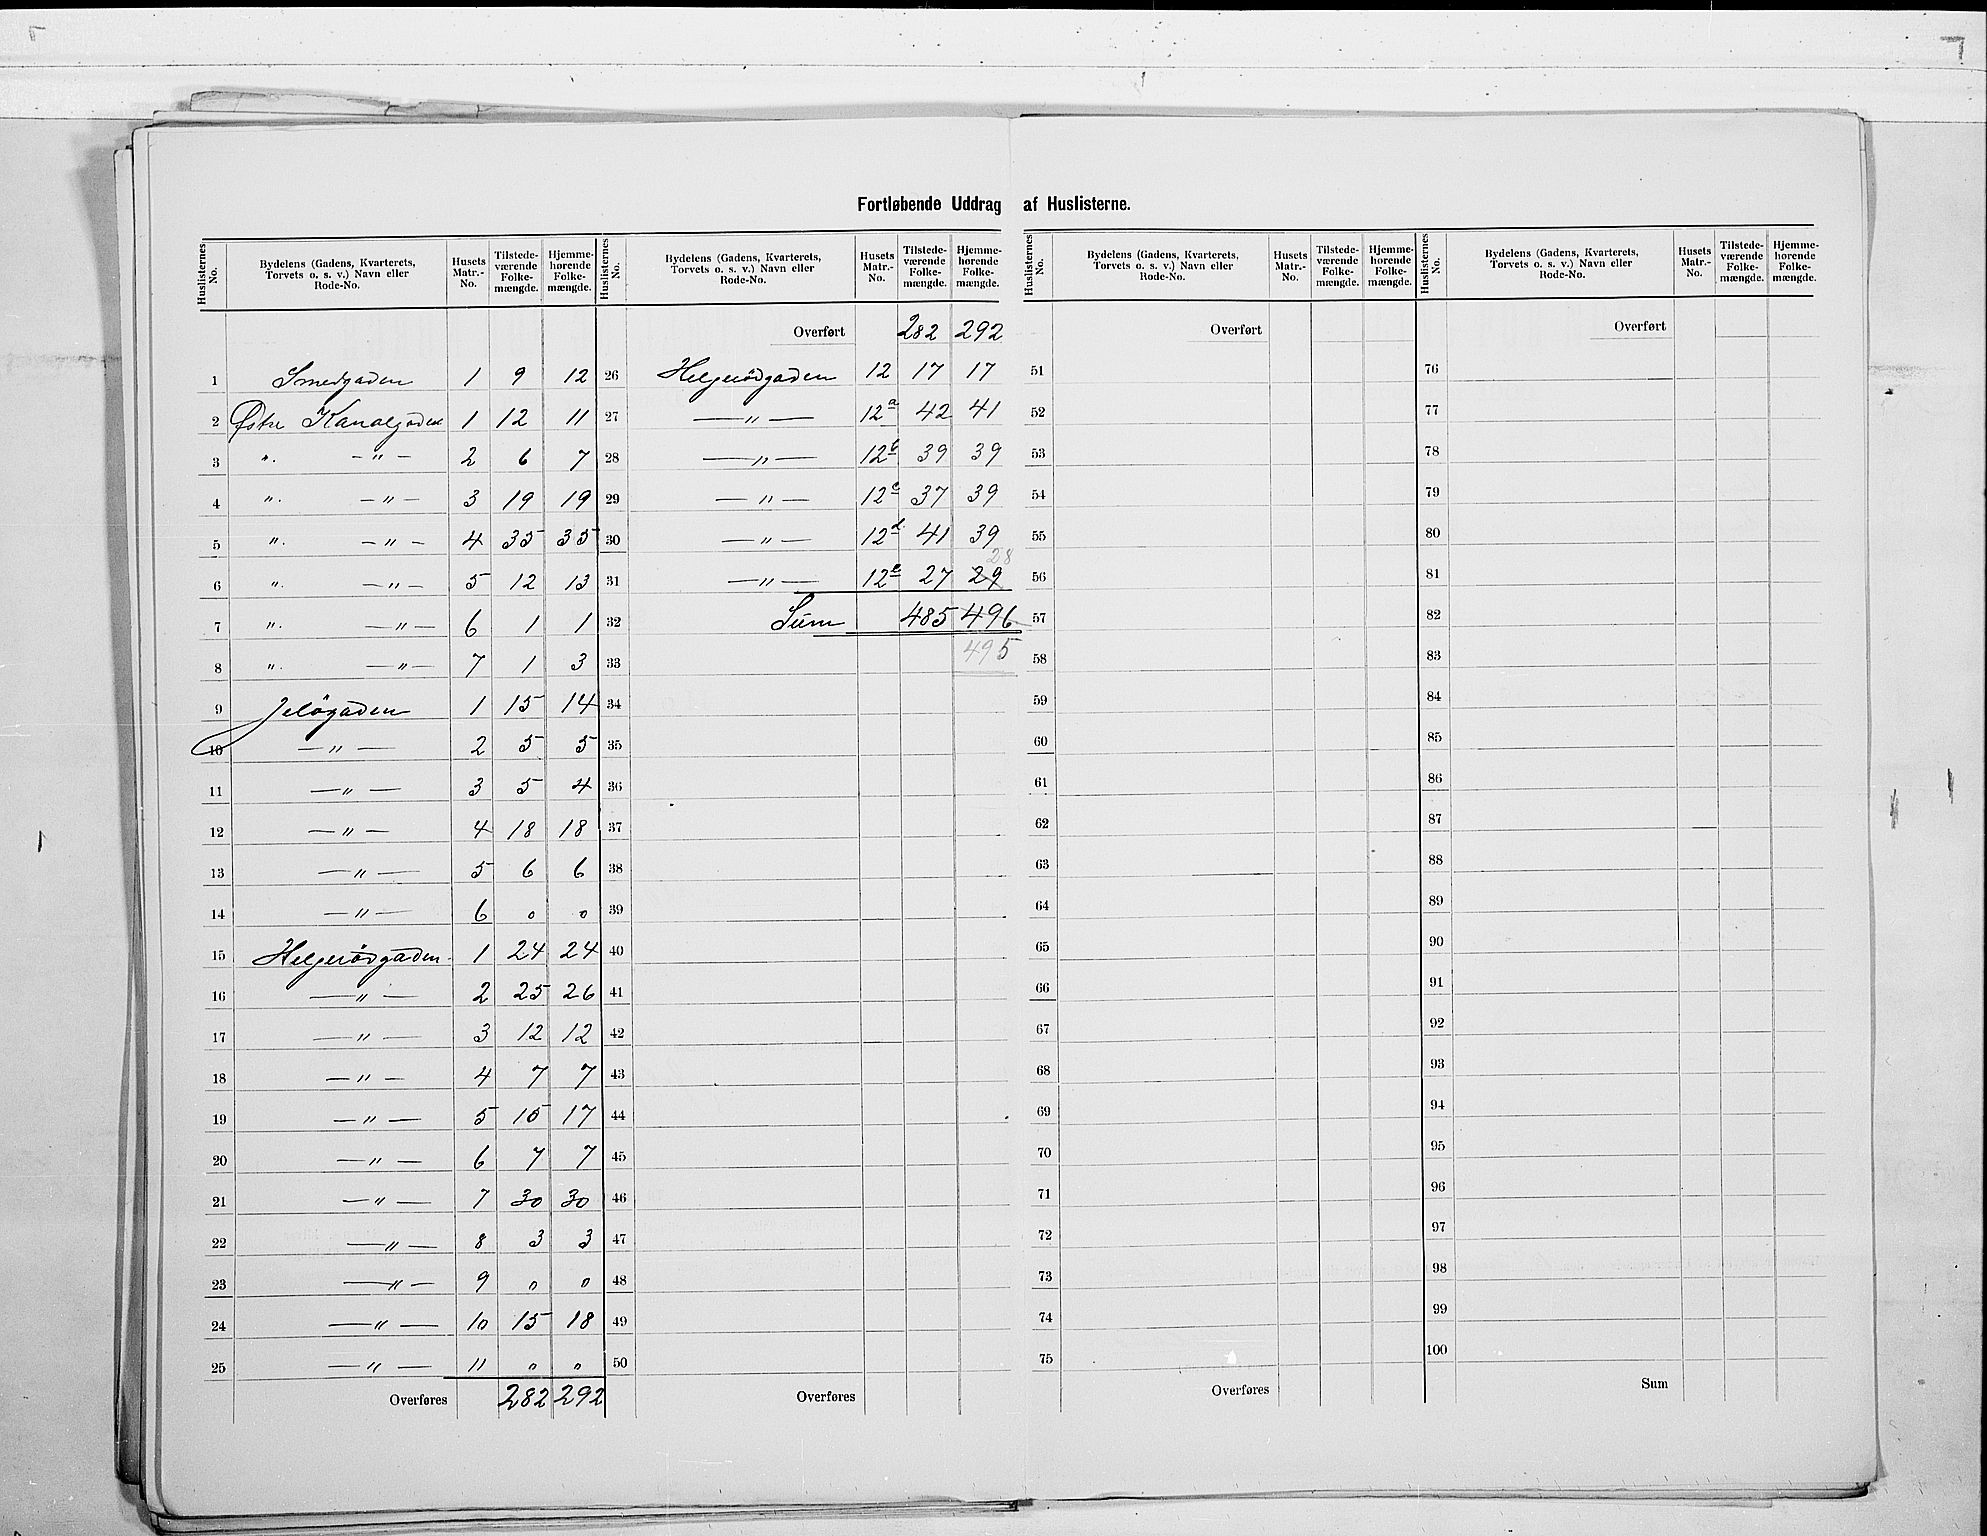 Fortløbende Uddrag af Huslisterne.
Huslisternes No. Bydelens (Gadens, Kvarterets, Torvets o. s. v.) Navn eller Rode-No. Husets Matr.-No. Tilstedeværende Folkemængde. Hjemmehørende Folkemængde.
1 Smedgaden 1 9 12
2 Østre Kanalgaden 1 12 11
3 ". —"— 2 6 7
4 ". —"— 3 19 19
5 ". —"— 4 35 35
6 ". —"— 5 12 13
7 ". —"— 6 1 1
8 ". —"— 7 1 3
9 Jeløgaden 1 15 14
10 —"— 2 5 5
11 —"— 3 5 4
12 —"— 4 18 18
13 —"— 5 6 6
14 —"— 6 0 0
15 Helgerødgaden 1 24 24
16 —"— 2 25 26
17 —"— 3 12 12
18 —"— 4 7 7
19 —"— 5 15 17
20 —"— 6 7 7
21 —"— 7 30 30
22 —"— 8 3 3
23 —"— 9 0 0
24 —"— 10 15 18
25 —"— 11 0 0
Overføres 282 292
Huslisternes No. Bydelens (Gadens, Kvarterets, Torvets o. s. v.) Navn eller Rode-No. Husets Matr.-No. Tilstedeværende Folkemængde. Hjemmehørende Folkemængde.
Overført 282 292
26 Helgerødgaden 12 17 17
27 —"— 12a 42 41
28 —"— 12b 39 39
29 —"— 12c 37 39
30 —"— 12d 41 39
28
31 —"— 12e 27 29
32 Sum 485 496
495
33
34
35
36
37
38
39
40
41
42
43
44
45
46
47
48
49
50
Overføres
Huslisternes No. Bydelens (Gadens, Kvarterets, Torvets o. s. v.) Navn eller Rode-No. Husets Matr.-No. Tilstedeværende Folkemængde. Hjemmehørende Folkemængde.
Overført
51
52
53
54
55
56
57
58
59
60
61
62
63
64
65
66
67
68
69
70
71
72
73
74
75
Overføres
Huslisternes No. Bydelens (Gadens, Kvarterets, Torvets o. s. v.) Navn eller Rode-No. Husets Matr.-No. Tilstedeværende Folkemængde. Hjemmehørende Folkemængde.
Overført
76
77
78
79
80
81
82
83
84
85
86
87
88
89
90
91
92
93
94
95
96
97
98
99
100
Sum